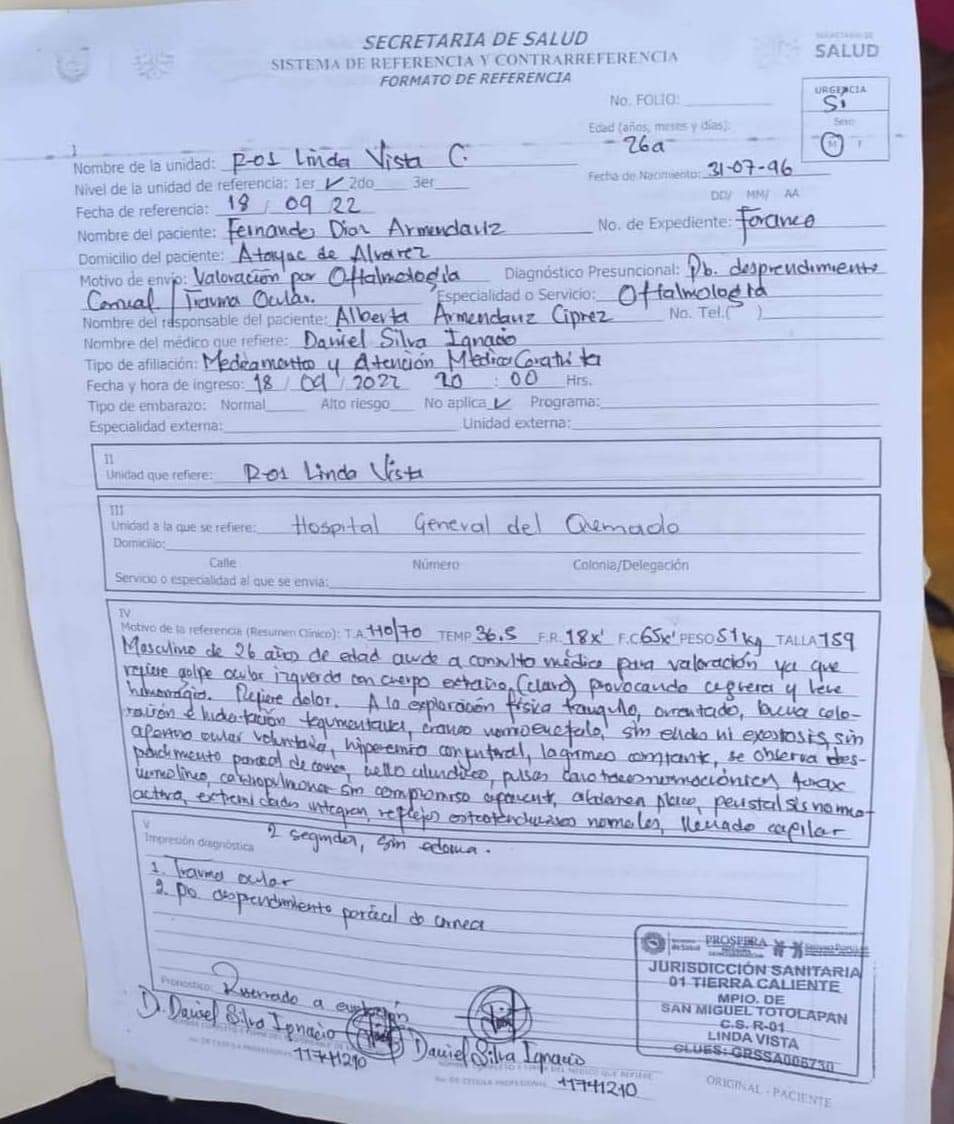 SECRETARIA DE SALUD
SISTEMA DE REFERENCIA Y CONTRARREFERENCIA
FORMATO DE REFERENCIA
SALUD
No. FOLIO:
URGENCIA
Si
Edad (años, meses y días):
26a
Sexo
M F
I
Nombre de la unidad: R-01 Linda Vista C.
Fecha de Nacimiento: 31-07-96
Nivel de la unidad de referencia: 1er ✓ 2do 3er
DD/ MM/ AA
Fecha de referencia: 18 / 09 / 22
Nombre del paciente: Fernando Dior Armendariz No. de Expediente: Foraneo
Domicilio del paciente: Atoyac de Alvarez
Motivo de envío: Valoración por Oftalmología Diagnóstico Presuncional: Pb. desprendimiento
Corneal / Trauma Ocular. Especialidad o Servicio: Oftalmologia
Nombre del responsable del paciente: Alberta Armendariz Ciprez No. Tel.( )
Nombre del médico que refiere: Daniel Silva Ignacio
Tipo de afiliación: y Atención Medica
Fecha y hora de ingreso: 18 / 09 / 2022 20 : 00 Hrs.
Tipo de embarazo: Normal Alto riesgo No aplica ✓ Programa:
Especialidad externa: Unidad externa:
II
Unidad que refiere: R-01 Linda Vista
III
Unidad a la que se refiere: Hospital General del Quemado
Domicilio:
Calle Número Colonia/Delegación
Servicio o especialidad al que se envia:
IV
Motivo de la referencia (Resumen Clínico): T.A. 110/70 TEMP 36.5 F.R. 18x' F.C 65x' PESO 51kg TALLA 159
Masculino de 26 años de edad acude a consulta médica para valoración ya que
refiere golpe ocular izquierdo con cuerpo extraño, (clavo) provocando ceguera y leve
hemorragia. Refiere dolor. A la exploración física tranquilo, orientado, buena colo-
ración e hidratación tegumentaria, craneo normocefalo, sin ni exostosis, sin
apertura ocular voluntaria, hiperemia conjuntival, lagrimeo constante, se observa des-
prendimiento parcial de cornea, cuello cilindrico, pulsos torax
normolineo, cardiopulmonar sin compromiso aparente, abdomen plano, peristalsis normo-
activa, extremidades integras, reflejos osteotendinosos normales, llenado capilar
2 segundos, sin edema.
V
Impresión diagnóstica
1. Trauma ocular
2. Pb. desprendimiento parcial de cornea
Pronostico: Reservado a evolución
D. Daniel Silva Ignacio
11741210
Daniel Silva Ignacio
11741210
PROSPERA
JURISDICCIÓN SANITARIA
01 TIERRA CALIENTE
MPIO. DE
SAN MIGUEL TOTOLAPAN
C.S. R-01
LINDA VISTA
CLUES: GRSSA006730
ORIGINAL - PACIENTE